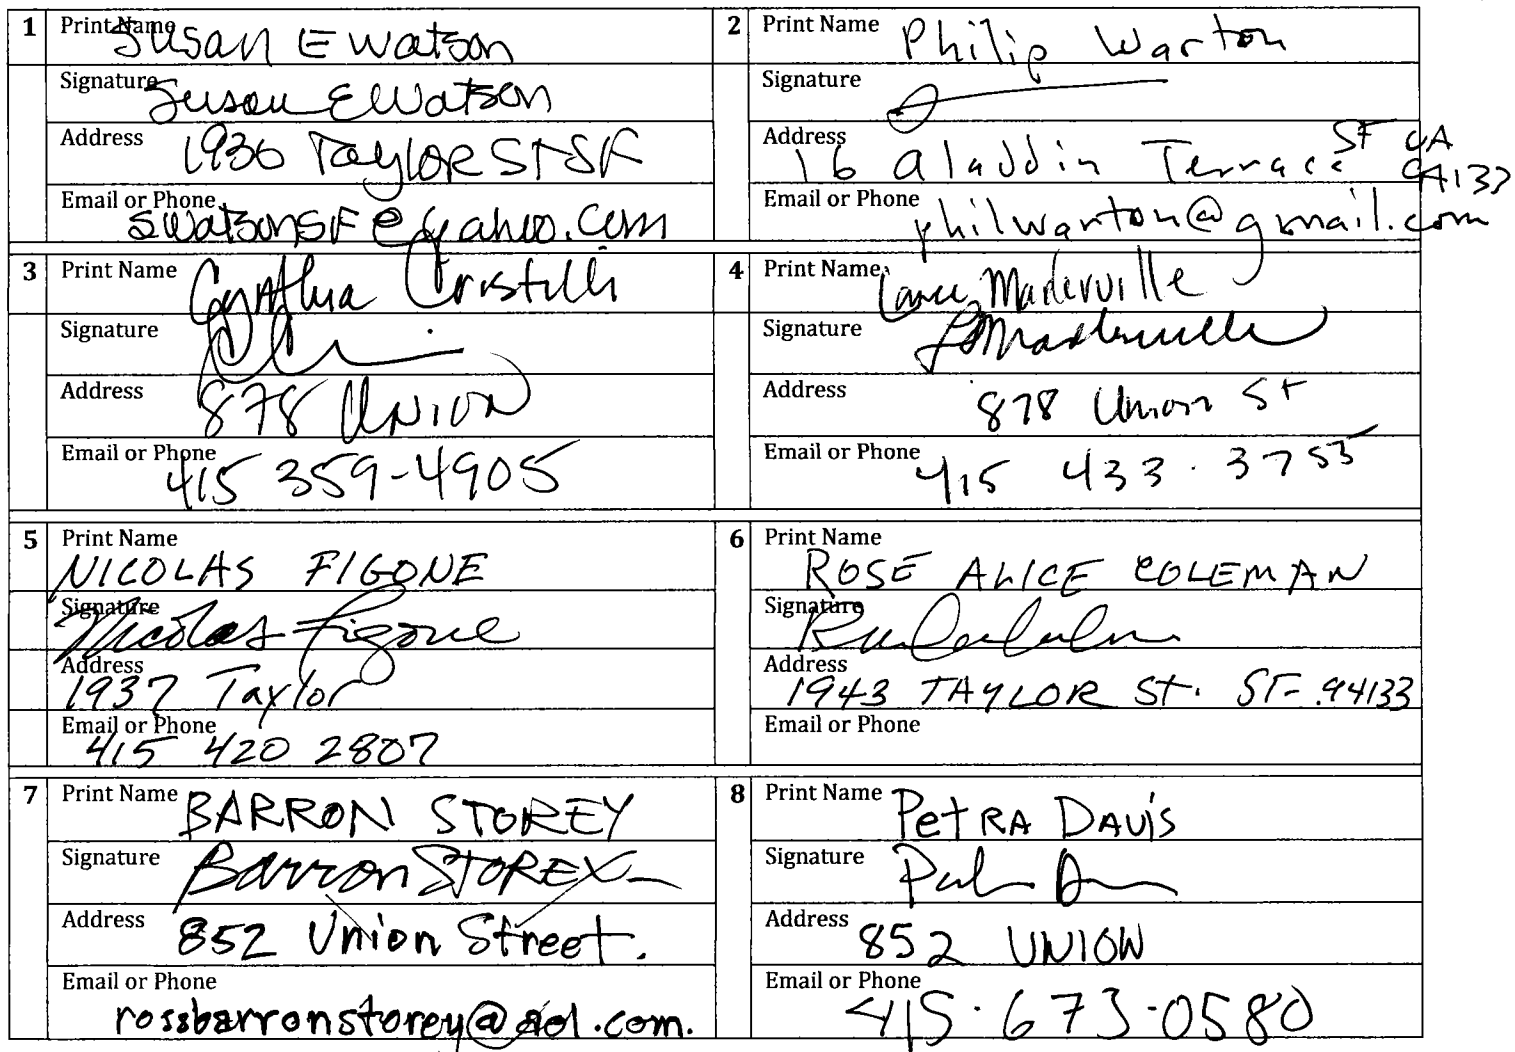 1 Print Name Susan E Watson
Signature Susan E Watson
Address 1936 Taylor St SF
Email or Phone swatsonSF@yahoo.com
2 Print Name Philip Warton
Signature
Address 16 Aladdin Terrace SF CA 94133
Email or Phone philwarton@gmail.com
3 Print Name Cynthia Cristilli
Signature
Address 878 Union
Email or Phone 415 359-4905
4 Print Name Lance Maderville
Signature
Address 878 Union St
Email or Phone 415 433.3755
5 Print Name NICOLAS FIGONE
Signature Nicolas Figone
Address 1937 Taylor
Email or Phone 415 420 2807
6 Print Name ROSE ALICE COLEMAN
Signature
Address 1943 TAYLOR St. SF 94133
Email or Phone
7 Print Name BARRON STOREY
Signature Barron STOREY
Address 852 Union Street.
Email or Phone rossbarronstorey@aol.com.
8 Print Name PetRA DAVis
Signature
Address 852 UNION
Email or Phone 415.673.0580